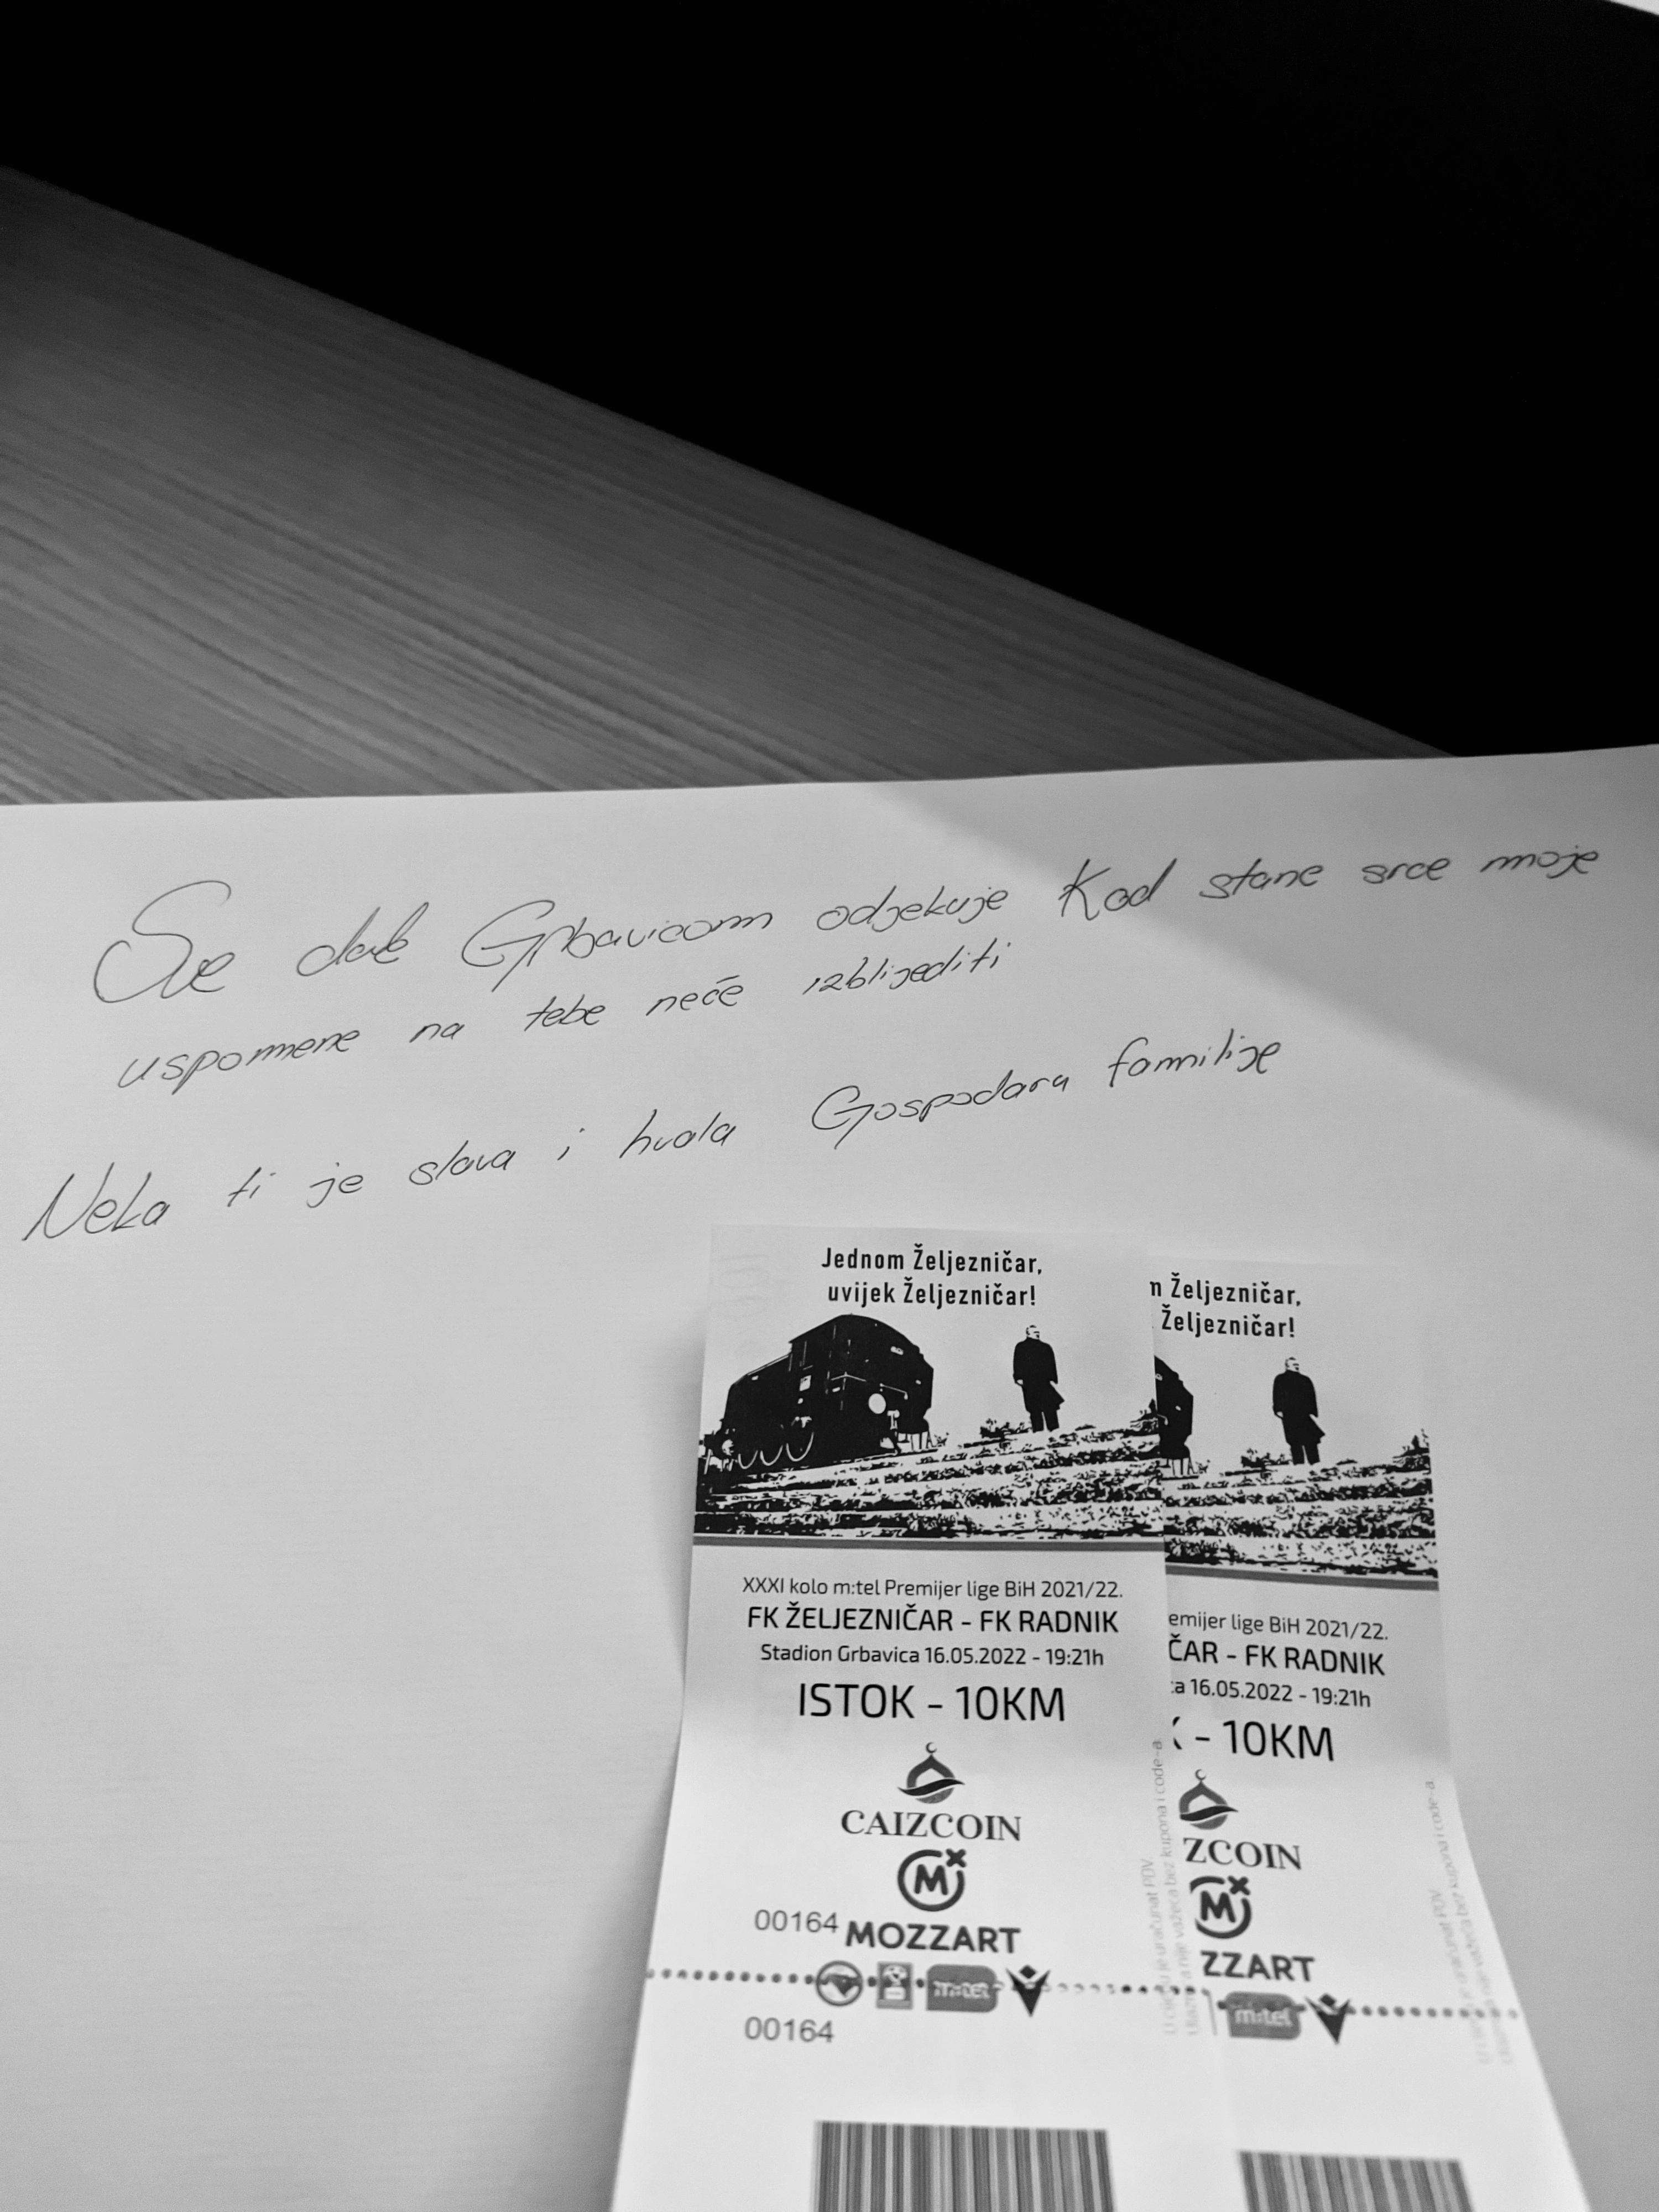 Sve dok Grbavicom odjekuje Kad stane srce moje
uspomene na tebe neće izblijediti
Neka ti je slava i hvala Gospodaru familije
Jednom Željezničar,
uvijek Željezničar!
XXXI kolo m:tel Premijer lige BiH 2021/22.
FK ŽELJEZNIČAR - FK RADNIK
Stadion Grbavica 16.05.2022 - 19:21h
ISTOK - 10KM
CAIZCOIN
M
00164 MOZZART
m:tel
00164
m Željezničar,
Željezničar!
emijer lige BiH 2021/22.
ČAR - FK RADNIK
ca 16.05.2022 - 19:21h
K - 10KM
ZCOIN
M
ZZART
m:tel